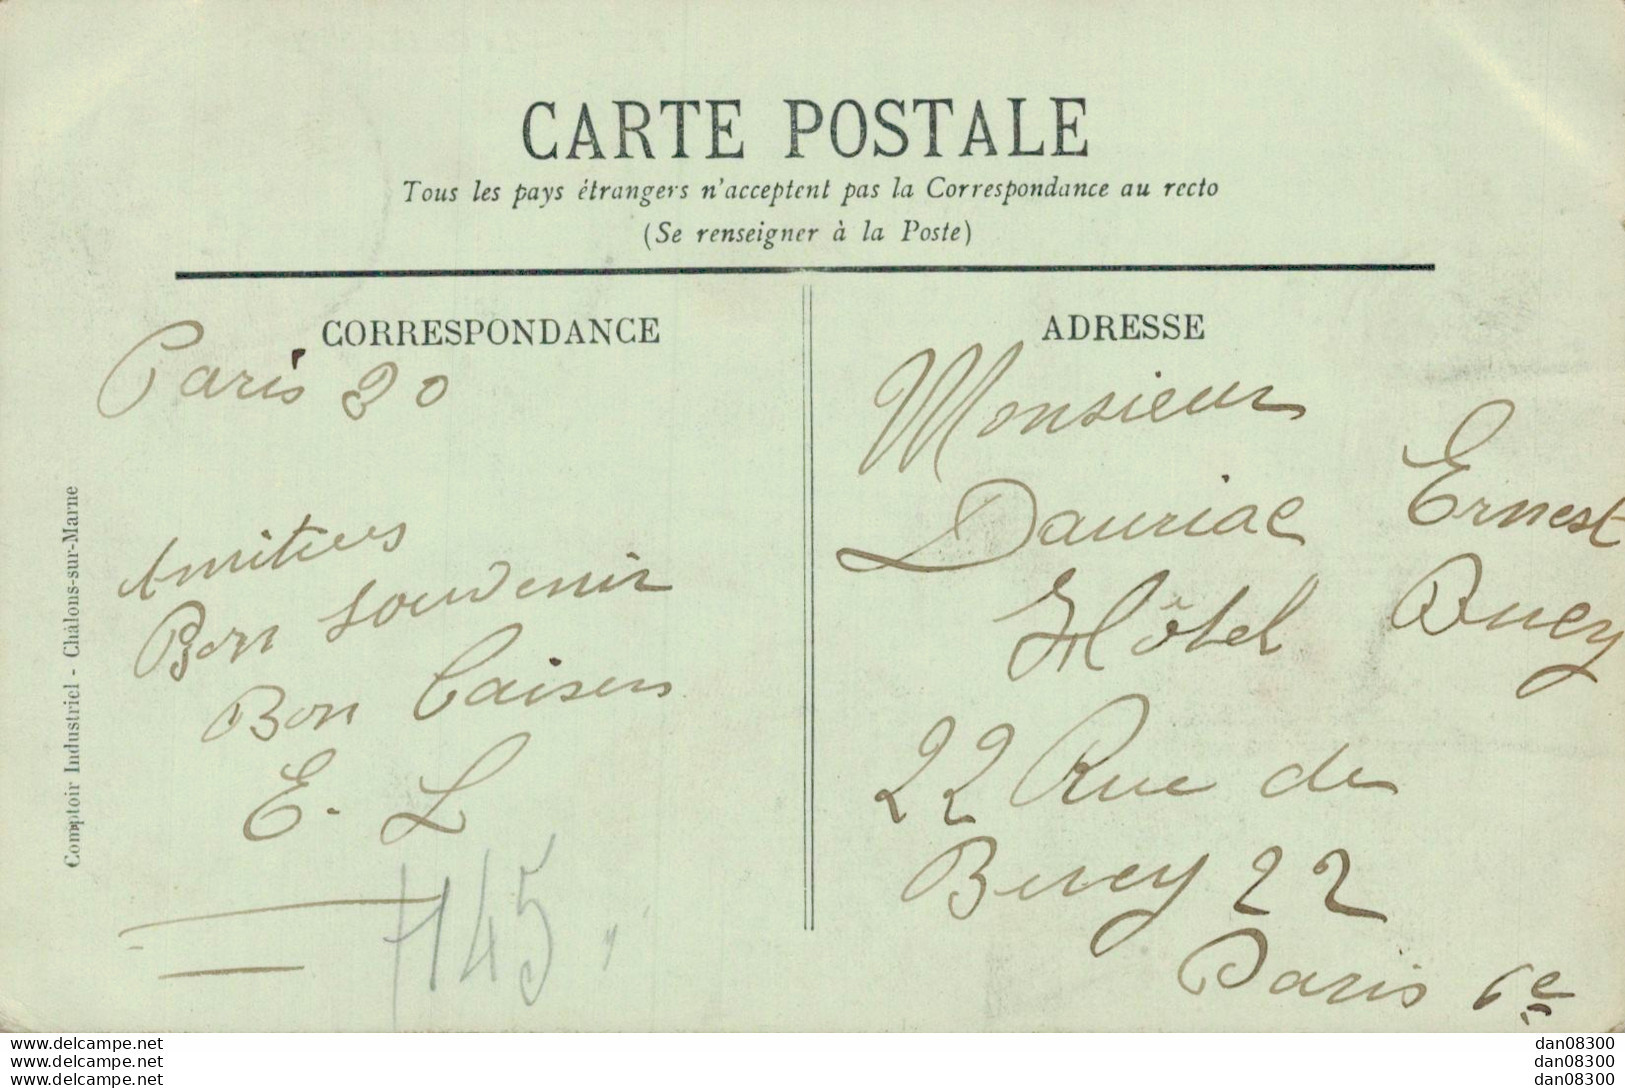 CARTE POSTALE
Tous les pays étrangers n'acceptent pas la Correspondance au recto
(Se renseigner à la Poste)
CORRESPONDANCE
Paris 30
Amitiés
Bon souvenir
Bon baisers
E. L
145
Comptoir Industriel - Châlons-sur-Marne
ADRESSE
Monsieur
Dauriac Ernest
Hôtel Bucy
22 Rue de
Bucy 22
Paris 6e
www.delcampe.net
www.delcampe.net
www.delcampe.net
dan08300
dan08300
dan08300